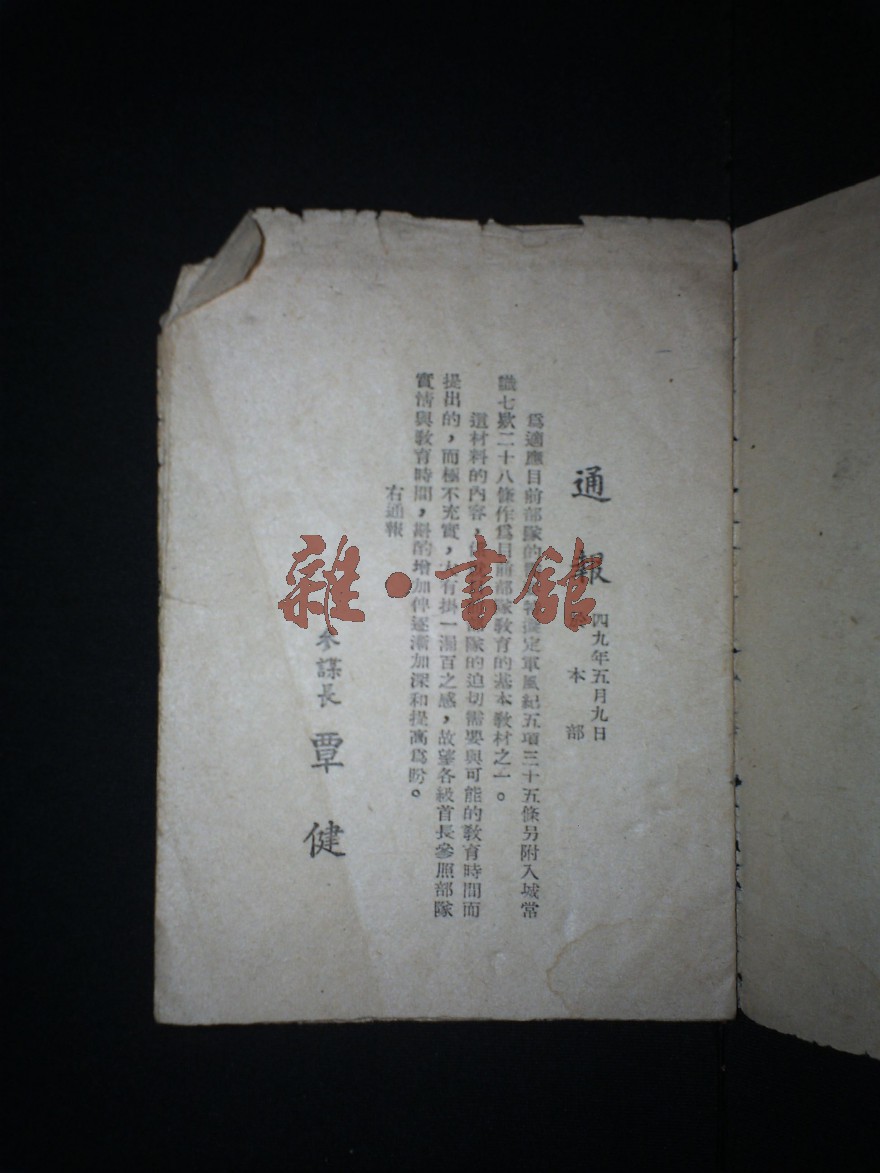 通報
四九年五月九日
本部
爲適應目前部隊的擬定軍風紀五項三十五條另附入城常
識七欵二十八條作爲目前部隊教育的基本教材之一。
這材料的內容，隊的迫切需要與可能的教育時間而
提出的，而極不充實，有掛一漏百之感，故望各級首長參照部隊
實情與教育時間，斟酌增加伴逐漸加深和提高爲盼。
右通報
參謀長 覃健
雜·書館